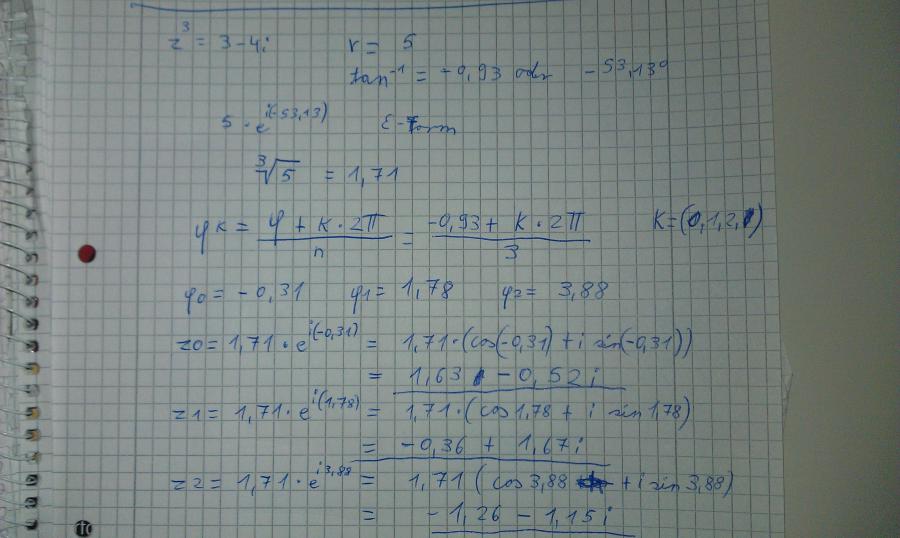 z³ = 3-4i r = 5
tan⁻¹ = -0,93 oder -53,13°
5 · e^i(-53,13) E-Form
³√5 = 1,71
φk = (φ + k · 2π)/n = (-0,93 + k · 2π)/3 K = (0,1,2,)
φ0 = -0,31 φ1 = 1,78 φ2 = 3,88
z0 = 1,71 · e^i(-0,31) = 1,71·(cos(-0,31) + i sin(-0,31))
= 1,63 - 0,52i
z1 = 1,71 · e^i(1,78) = 1,71·(cos1,78 + i sin 1,78)
= -0,36 + 1,67i
z2 = 1,71 · e^i3,88 = 1,71 (cos3,88 + i sin 3,88)
= -1,26 - 1,15i